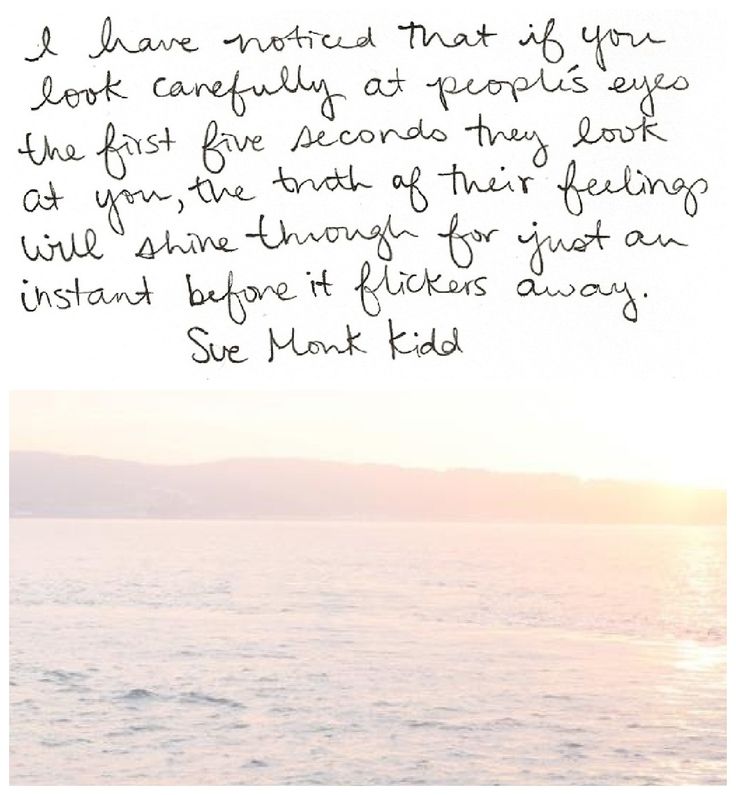 I have noticed that if you
look carefully at people's eyes
the first five seconds they look
at you, the truth of their feelings
will shine through for just an
instant before it flickers away.
Sue Monk Kidd